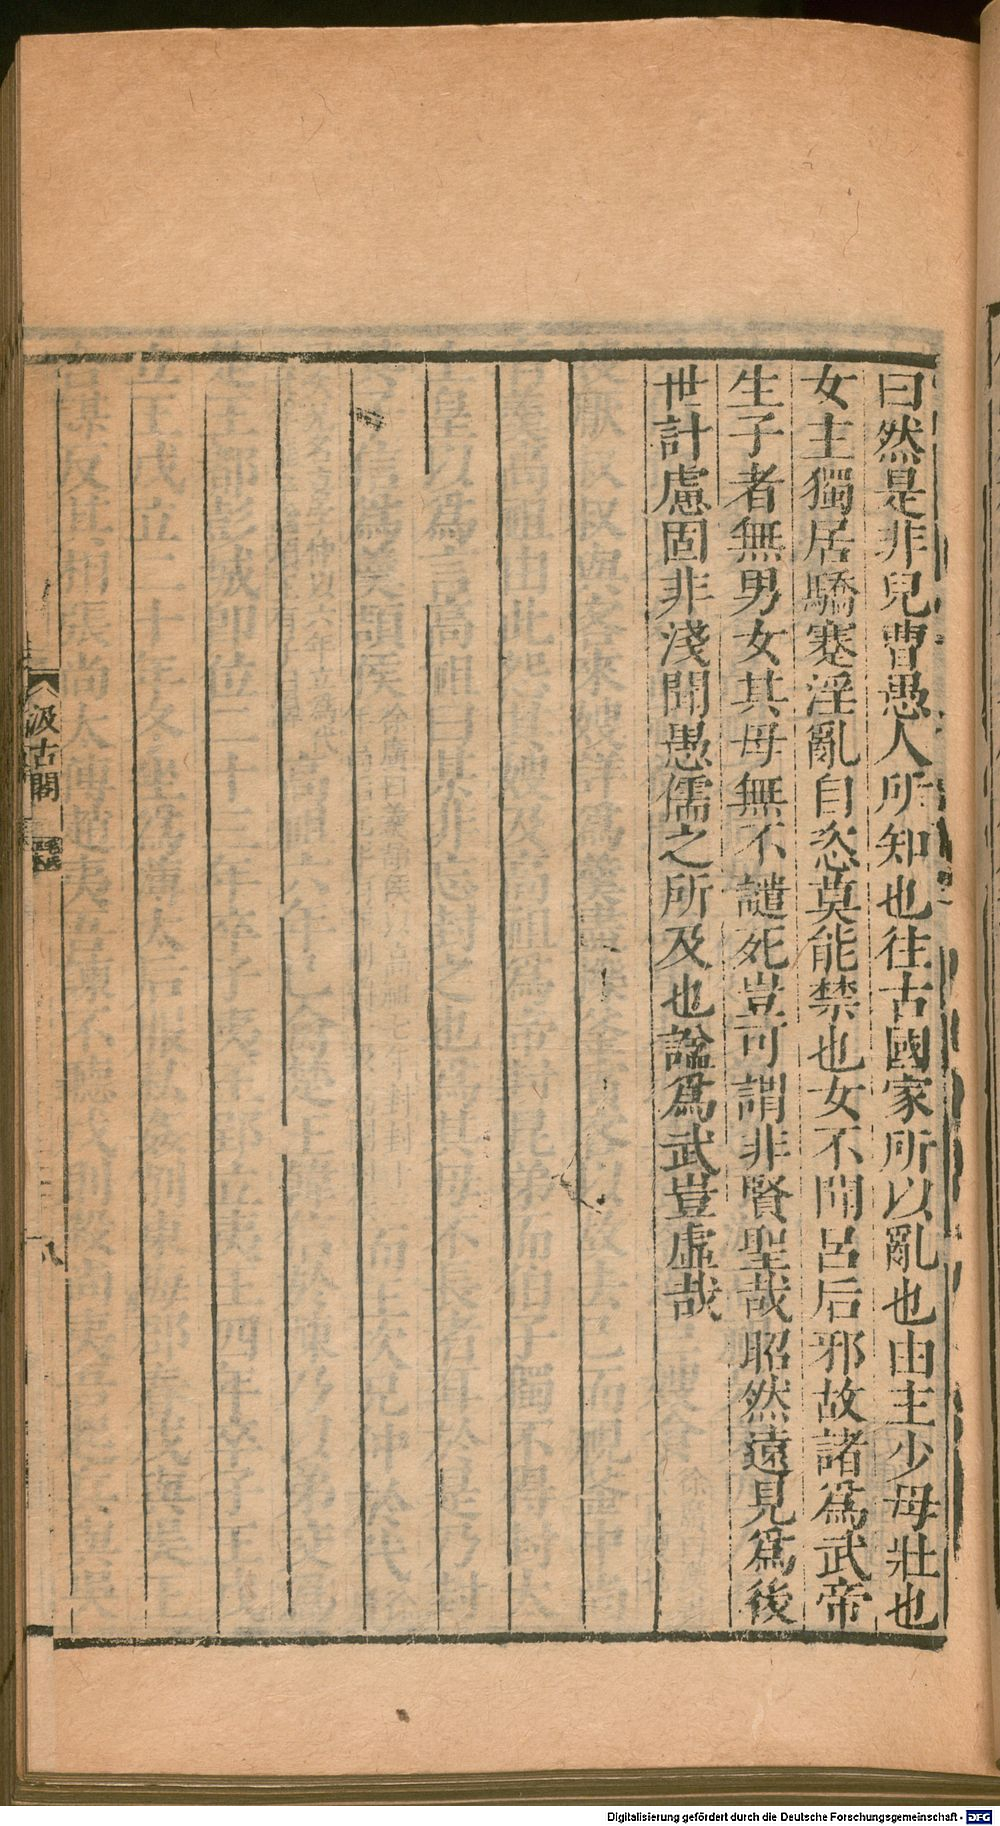 曰然是非兒曹愚人所知也往古國家所以亂也由主少母壯也
女主獨居驕蹇淫亂自恣莫能禁也女不聞呂后邪故諸爲武帝
生子者無男女其母無不譴死豈可謂非賢聖哉昭然遠見爲後
世計慮固非淺聞愚儒之所及也諡爲武豈虛哉
汲古閣
毛氏
正本
Digitalisierung gefördert durch die Deutsche Forschungsgemeinschaft - DFG